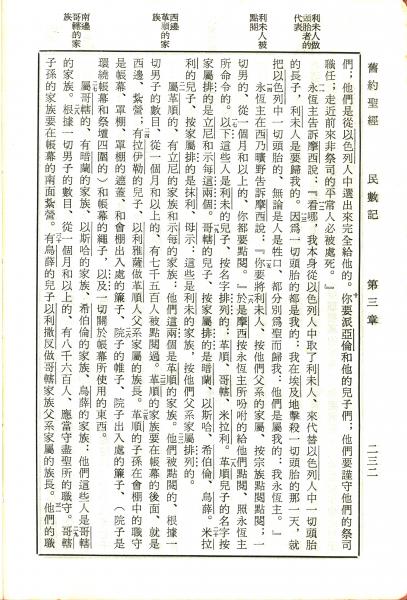 舊約聖經 民數記 第三章 二三二
利未人做頭胎者的代表
利未人被點閱
西邊革順的家族
南邊哥轄的家族
們；他們是從以色列人中選出來完全給他的。你要派亞倫和他的兒子們；他們要謹守他們的祭司
職任；走近前來非祭司的平常人必被處死。』
永恆主告訴摩西說：『看哪，我本身從以色列人中取了利未人、來代替以色列人中一切頭胎
的長子，利未人是要歸我的。因爲一切頭胎的都是我的：我在埃及地擊殺一切頭胎的那一天，就
把以色列中一切頭胎的、無論是人是牲口、都分別爲聖而歸我：他們是屬我的；我永恆主。』
永恆主在西乃曠野告訴摩西說：『你要將利未人、按他們父系的家屬、按宗族點閱點閱；
切男的、從一個月和以上的、你都要點閱。』於是摩西按永恆主所吩咐的給他們點閱、照永恆主
所命令的。以下這些人是利未的兒子、按名字排列的：革順、哥轄、米拉利。革順兒子的名字按
家屬排的是立尼和示每這兩個。哥轄的兒子、按家屬排的是暗蘭、以斯哈、希伯倫、烏薛。米拉
利的兒子、按家屬排的是抹利、母示：這些是利未的家族、按他們父系家屬排列的。
屬革順的、有立尼的家族和示每的家族：他們這兩個是革順的家族。他們被點閱的、根據一
切男子的數目、從一個月和以上的、有七千五百人被點閱過。革順的家族要在帳幕的後面、就是
西邊、紮營；有拉伊勒的兒子、以利雅薩做革順人父系家屬的族長。革順的子孫在會棚中的職守
是帳幕、罩棚、罩棚的遮蓋、和會棚出入處的簾子、院子的帷子、院子出入處的簾子、（院子是
環繞帳幕和祭壇四圍的）和帳幕的繩子，以及一切關於帳幕所使用的東西。
屬哥轄的、有暗蘭的家族、以斯哈的家族、希伯倫的家族、烏薛的家族：他們這些人是哥轄
的家族。根據一切男子的數目、從一個月和以上的、有八千六百人、應當守盡聖所的職守。哥轄
子孫的家族要在帳幕的南面紮營。有烏薛的兒子以利撒反做哥轄家族父系家屬的族長。他們的職